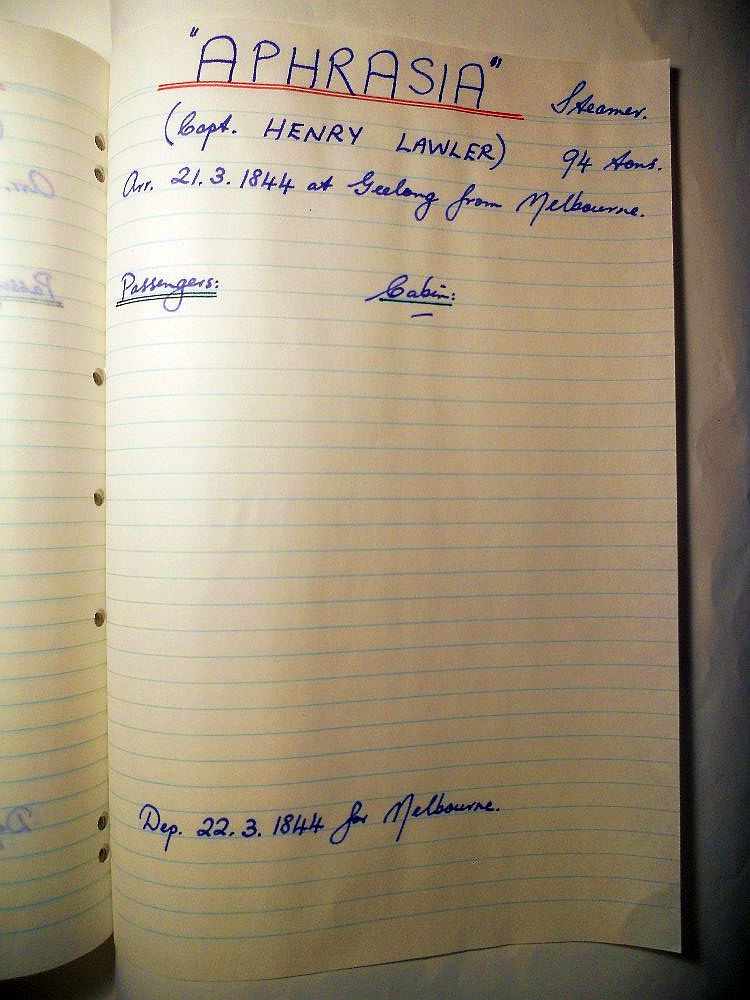 "APHRASIA"
Steamer.
(Capt. HENRY LAWLER)
94 tons.
Arr. 21.3.1844 at Geelong from Melbourne.
Passengers: Cabin:
Dep. 22.3.1844 for Melbourne.